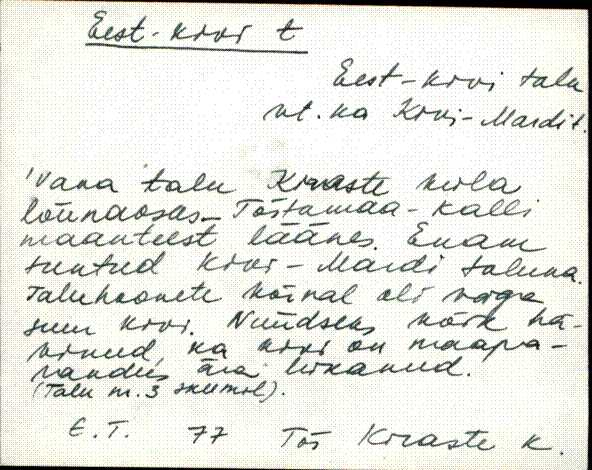 Eest-kivi t
Eest-kivi talu
vt. ka Kivi-Mardi t.
'Vana talu Kiraste küla
lõunaosas Tõstamaa-Kalli
maanteest läänes. Enam
tuntud Kivi-Mardi taluna.
Taluhoonete kõrval oli väga
suur kivi. Nüüdseks kõik hä-
vinud, ka kivi on maapa-
randus ära lükanud.
(Talu nr. 3 skeemil).
E.T. 77 Tõs Kiraste k.